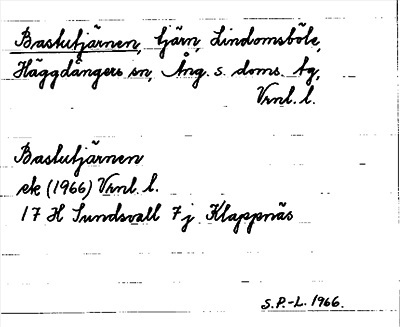 Bastutjärnen, tjärn, Lindomsböle,
Häggdångers sn, Ång. s. doms. tg,
Vrnl. l.
Bastutjärnen
ek (1966) Vrnl. l.
17 H Sundsvall 7 j Klappnäs
S.P.-L. 1966.